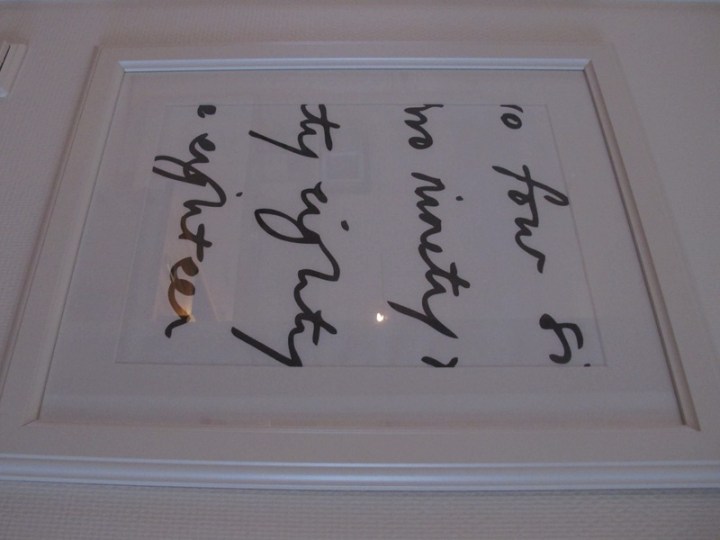 wo four si
wo ninety
ty eighty
eighteen